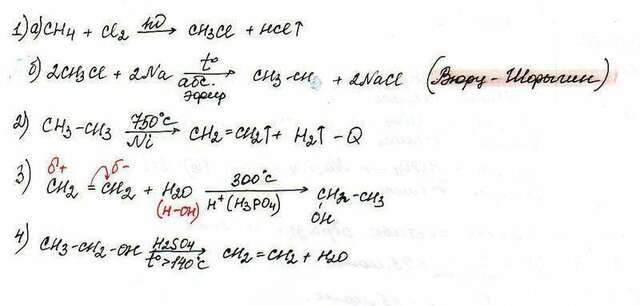 1) а) CH4 + Cl2 hν→ CH3Cl + HCl↑
б) 2CH3Cl + 2Na t° абс. эфир→ CH3-CH3 + 2NaCl (Вюрц-Шорыгин)
2) CH3-CH3 750°C Ni→ CH2=CH2↑ + H2↑ -Q
3) δ+ CH2 = δ- CH2 + H2O (H-OH) 300°C H+(H3PO4)→ CH2-CH3 OH
4) CH3-CH2-OH H2SO4 t°>140°C→ CH2=CH2 + H2O